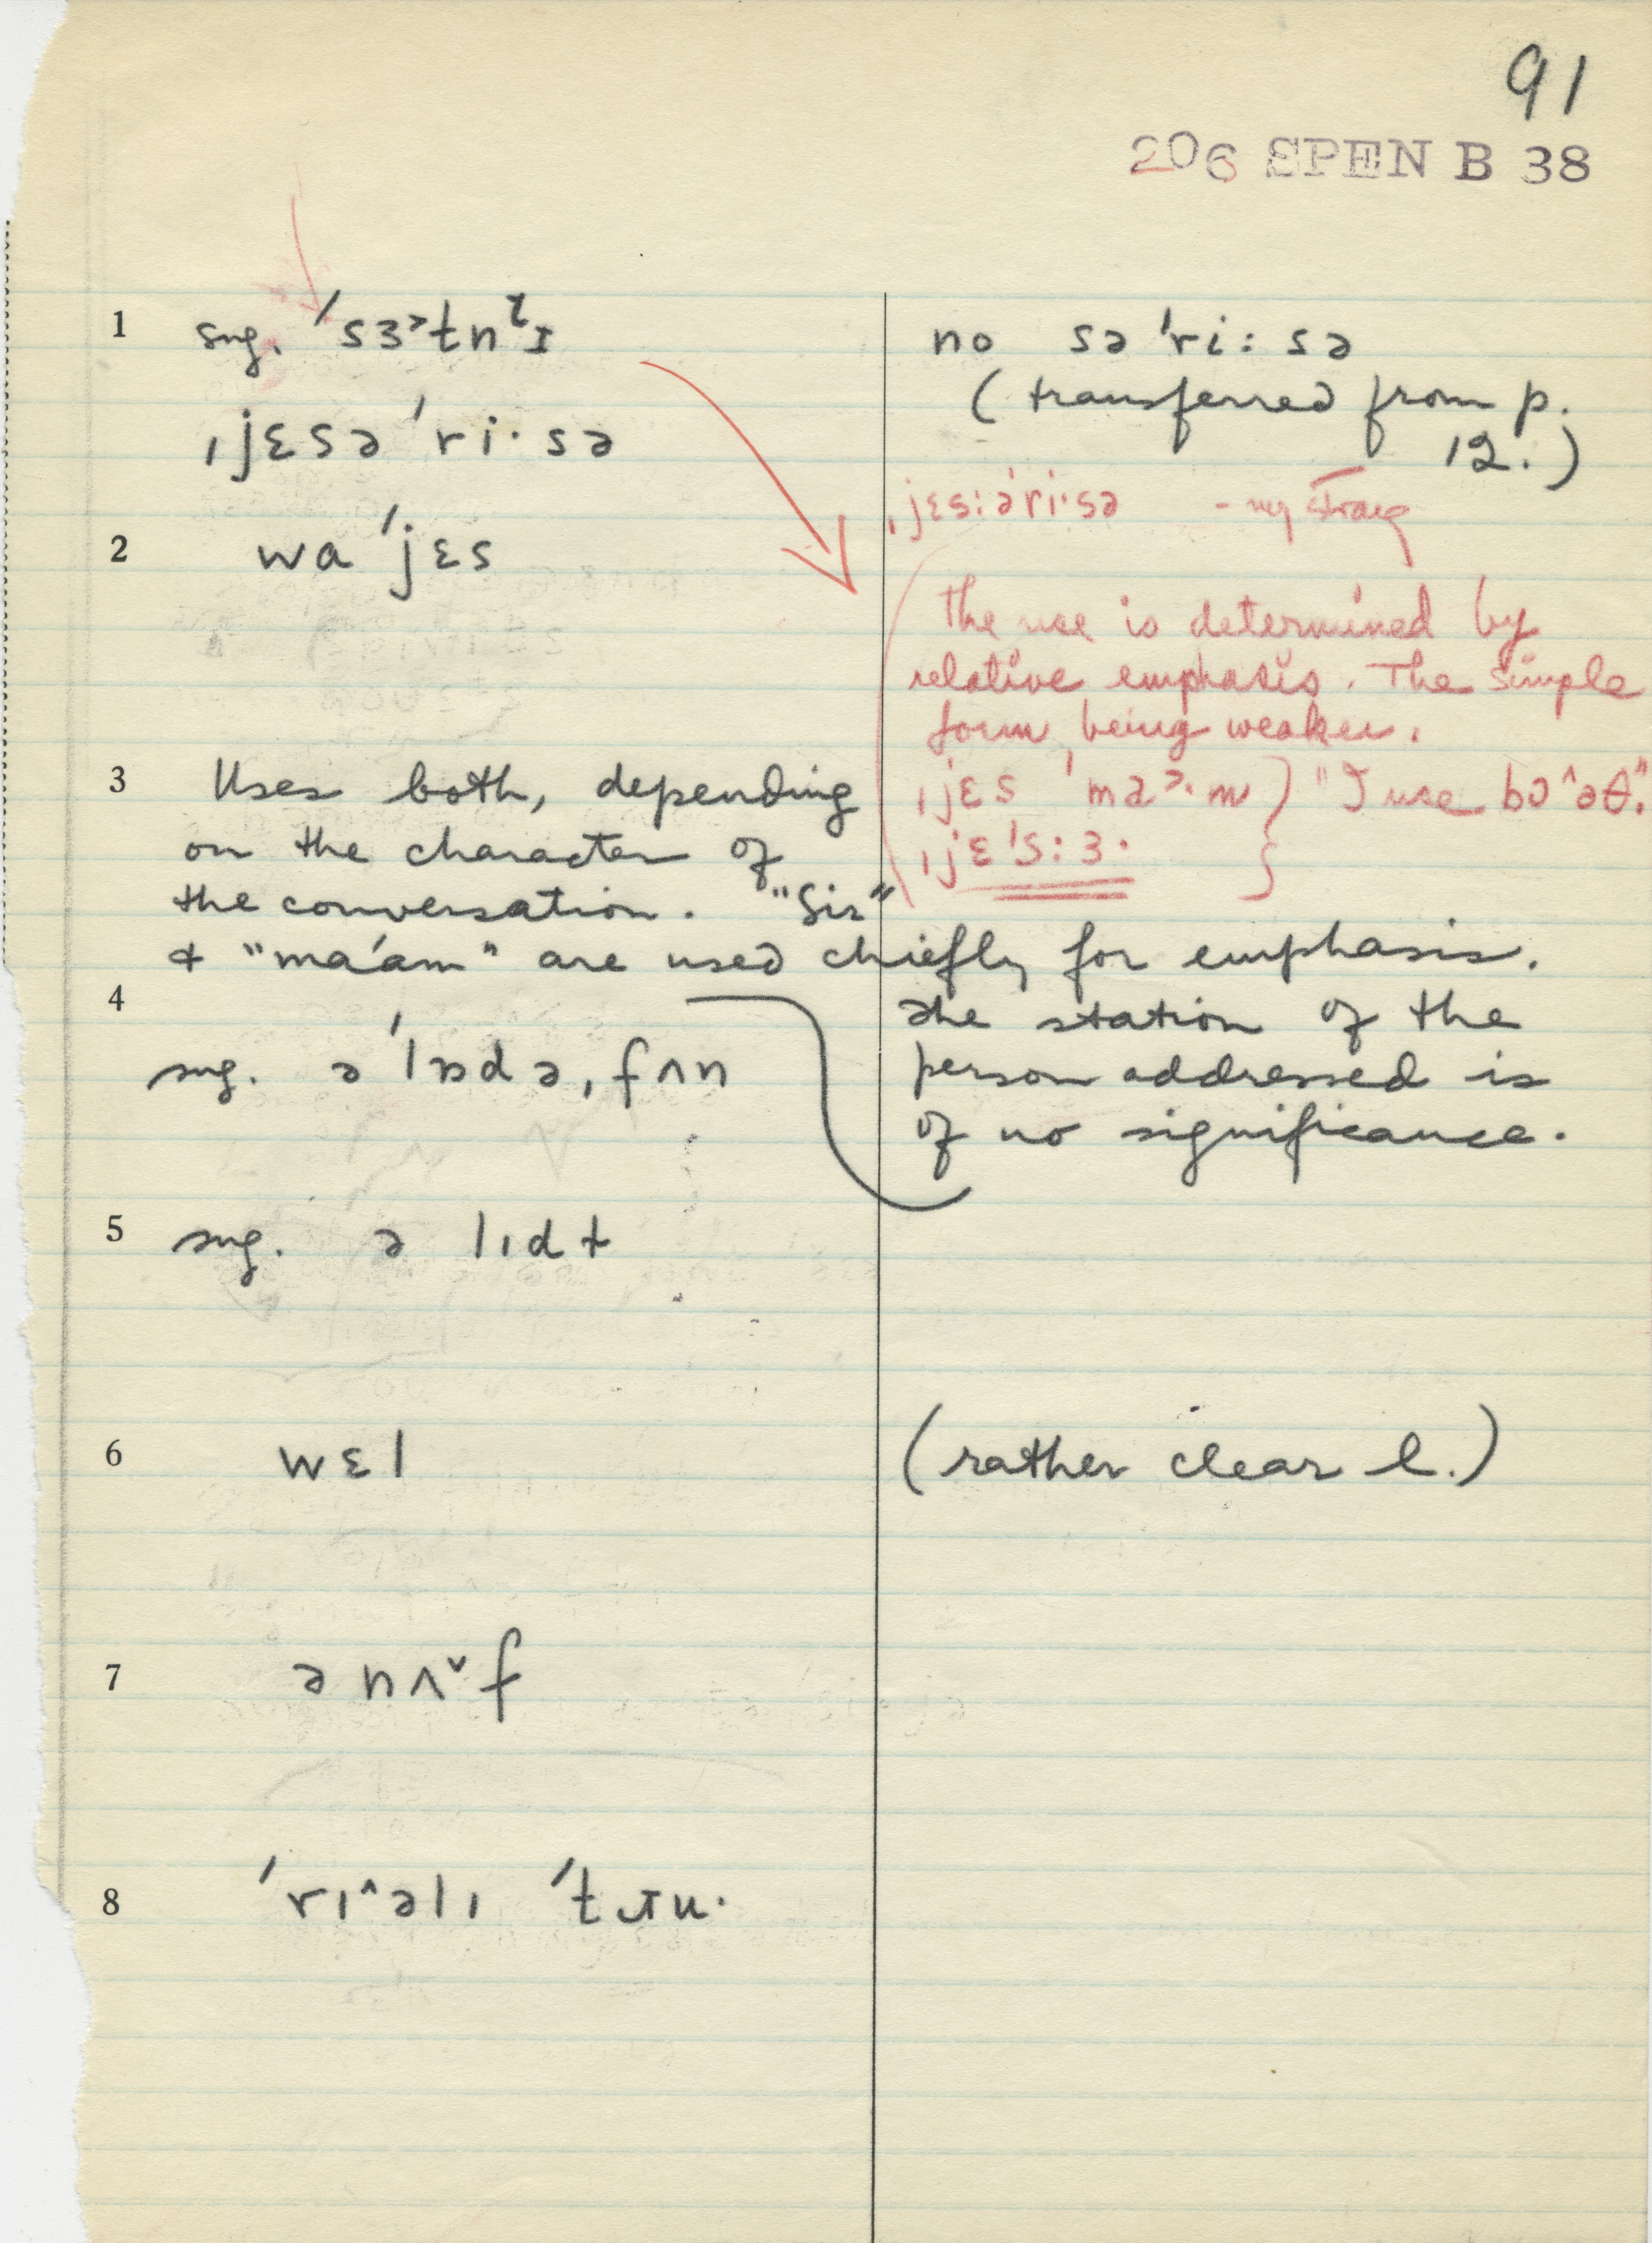 91
206 SPEN B 38
1 sug. ˈsɜ˃tnˡɪ
no səˈri:sə
(transferred from p.
12.)
ˌjɛsəˈri·sə
ˌjɛs:əˈri·sə
2 waˈjɛs
The use is determined by
relative emphasis. The simple
form being weaker.
ˌjɛs ˈma˃·m } "I use boˆəθ."
ˌjɛˈs:ɜ· }
3 Uses both, depending
on the character of
the conversation. "Sir"
& "ma'am" are used chiefly for emphasis.
The station of the
person addressed is
of no significance.
4
sug. əˈlɒdəˌfʌn
5 sug. ə lɪdt
6 wɛl
(rather clear l.)
7 ənʌˇf
8 ˈrɪˆəlɪ ˈtɹu·